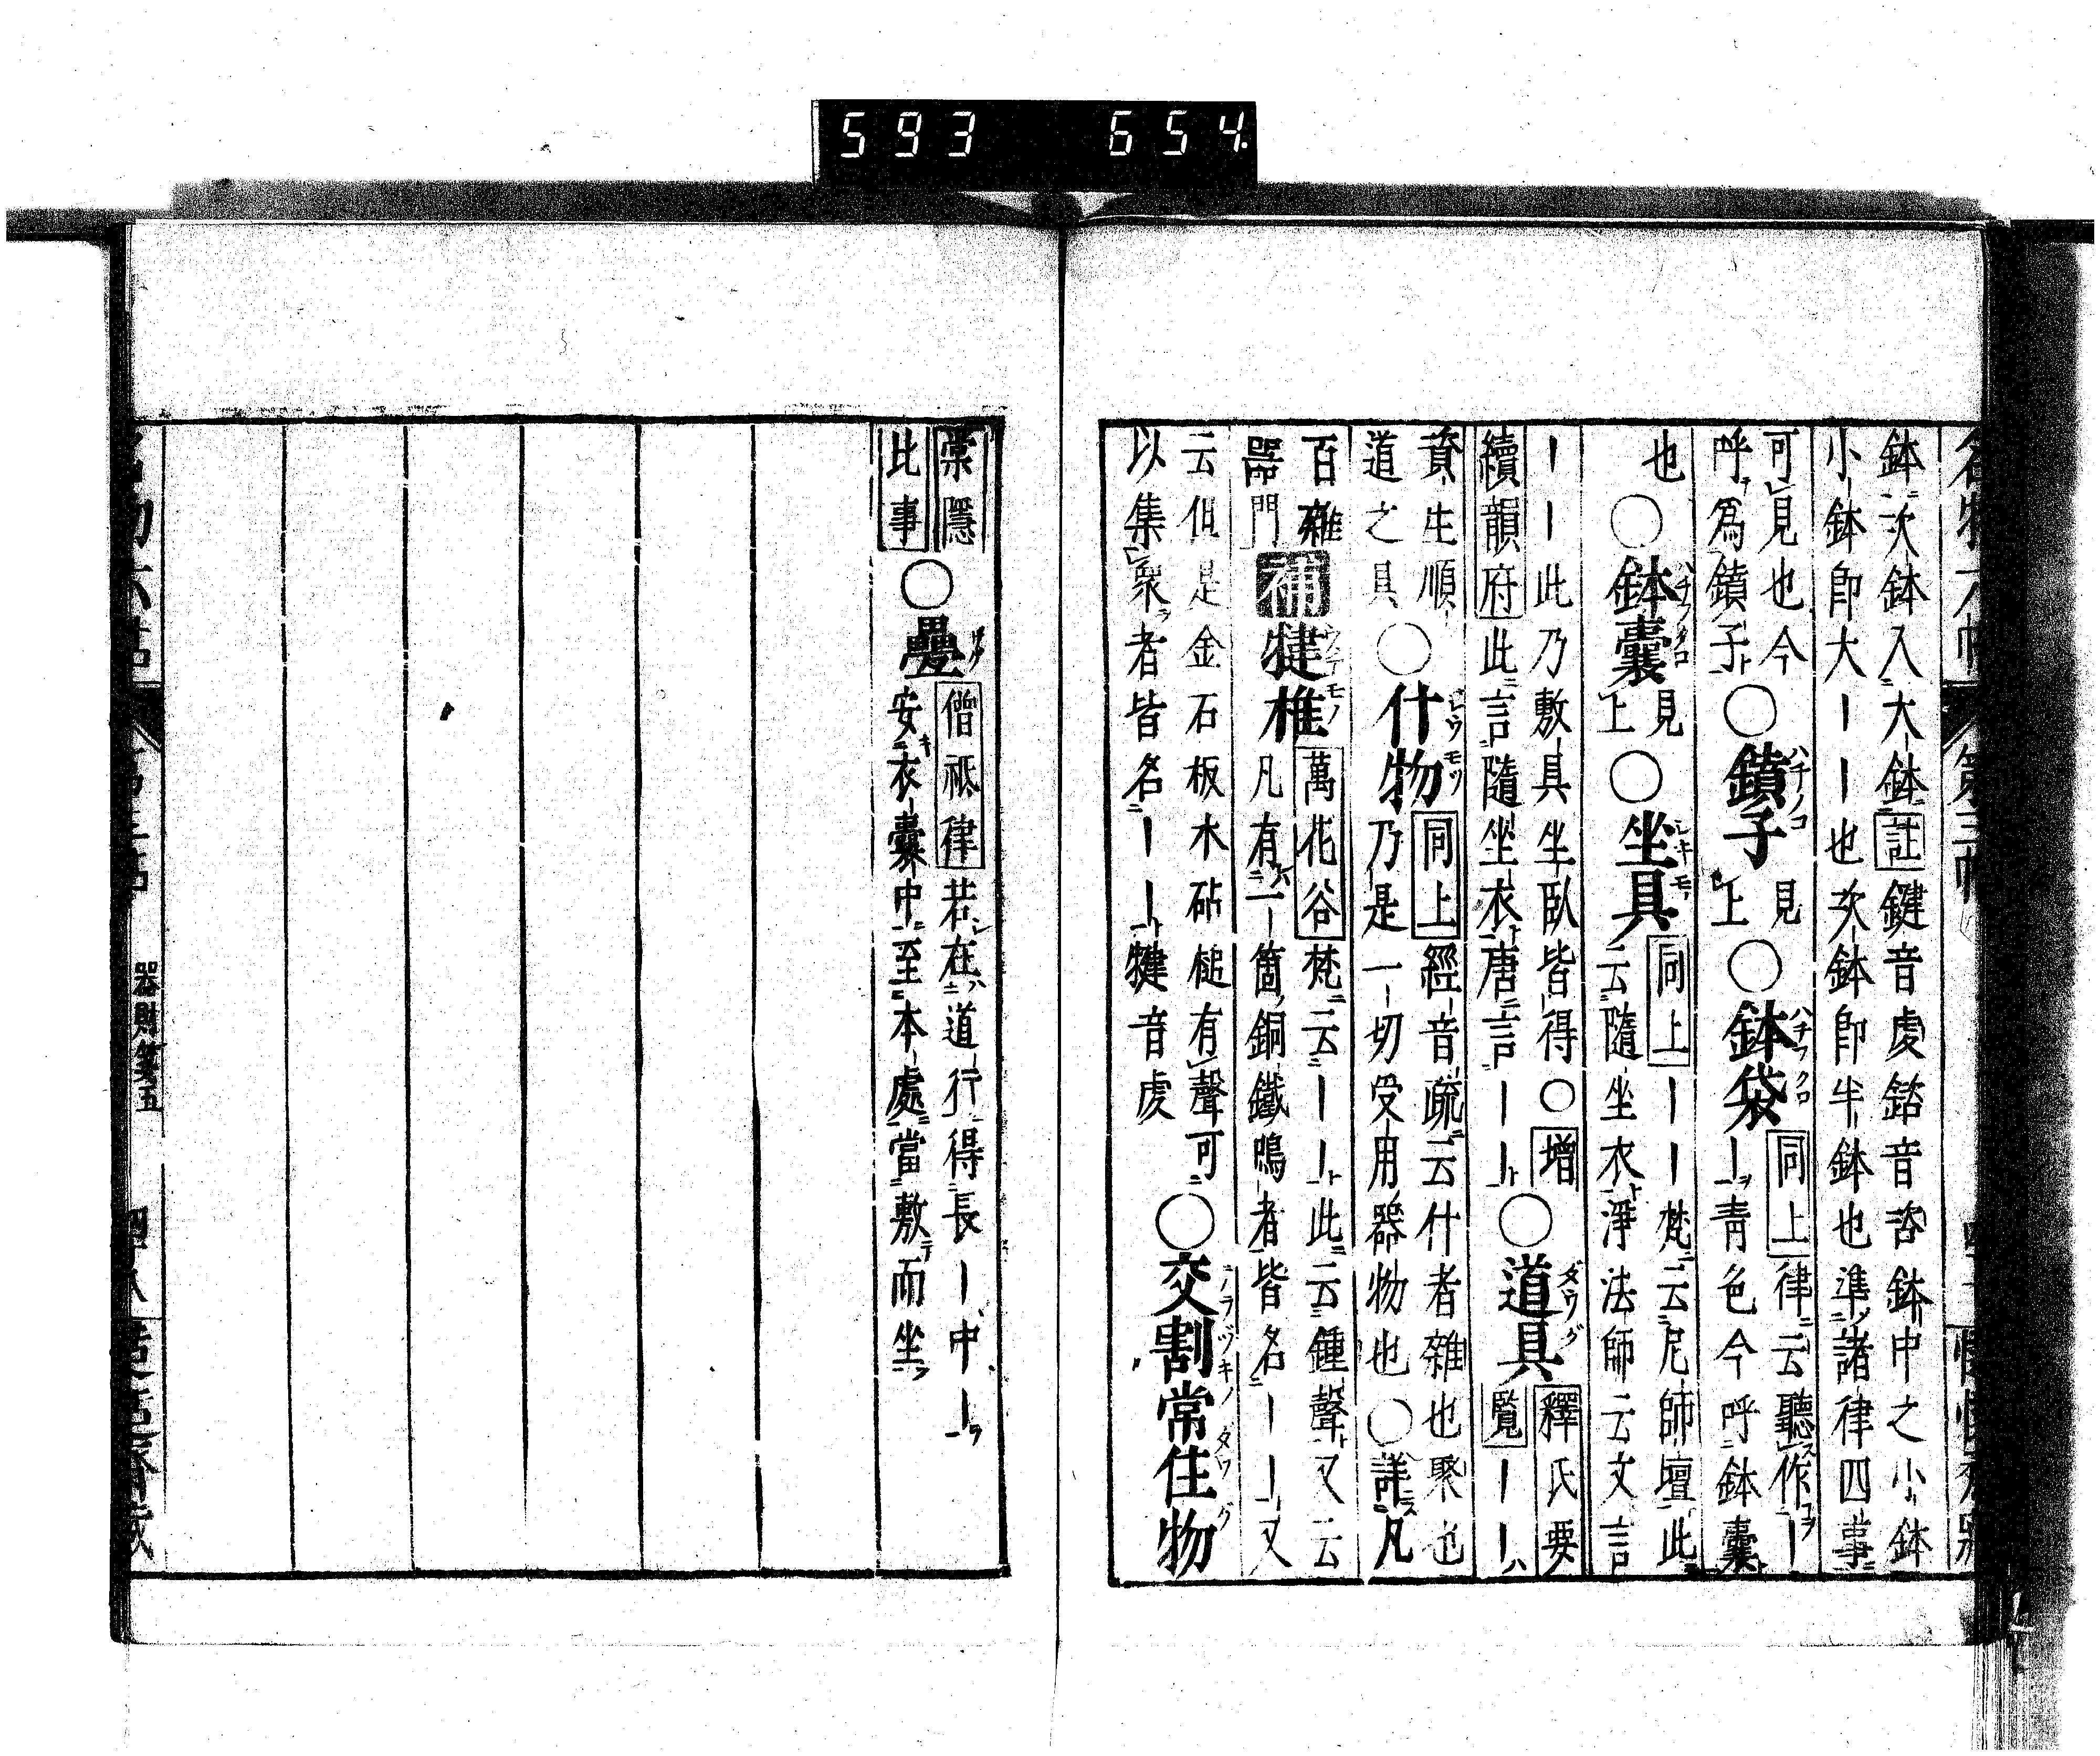 593 654
鉢次鉢入大鉢註鍵音虔䥯音咨鉢中之小鉢
小鉢即大｜｜也次鉢即半鉢也準諸律四事
可見也今
呼爲鎮子
○鎮子 ハチノコ
見上
○鉢袋 ハチフクロ
同上律云聽作｜
｜青色今呼鉢囊
也
○鉢囊 ハチフクロ
見上
○坐具 シキモノ
同上｜｜梵云尼師壇此
云隨坐衣淨法師云文言
｜｜此乃敷具坐臥皆得○增
續韻府此言隨坐衣唐言｜｜
○道具 ダウグ
釋氏要
覽｜｜ハ
資生順
道之具
○什物 ジウモツ
同上經音疏云什者雜也聚也
乃是一切受用器物也○詳凡
百雜
器門
補
犍椎
萬花谷梵云｜｜此云鍾聲又云
凡有一箇銅鐵鳴者皆名｜｜又
云但是金石板木砧槌有聲可
以集衆者皆名｜｜犍音虔
○交割常住物
棠隱
比事
○疊
僧祇律若在道行得長｜中｜
安衣囊中至本處當敷而坐
器財箋五